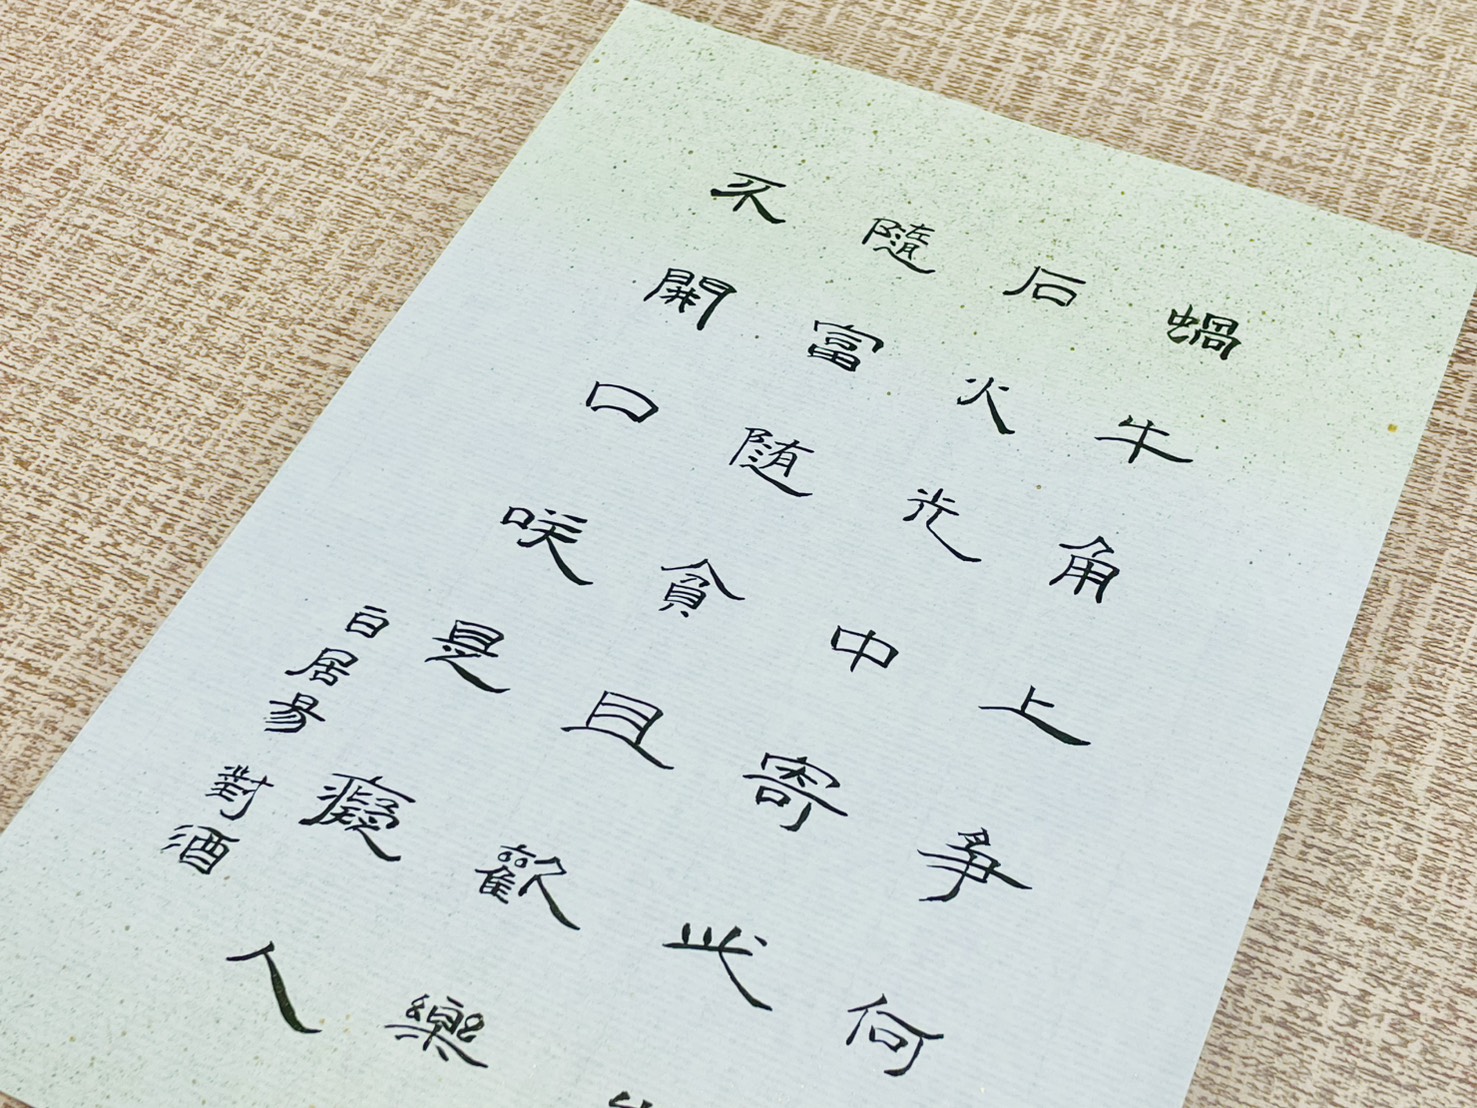 蝸牛角上争何
石火光中寄此
隨富随貧且歡樂
不開口咲是癡人
白居易對酒